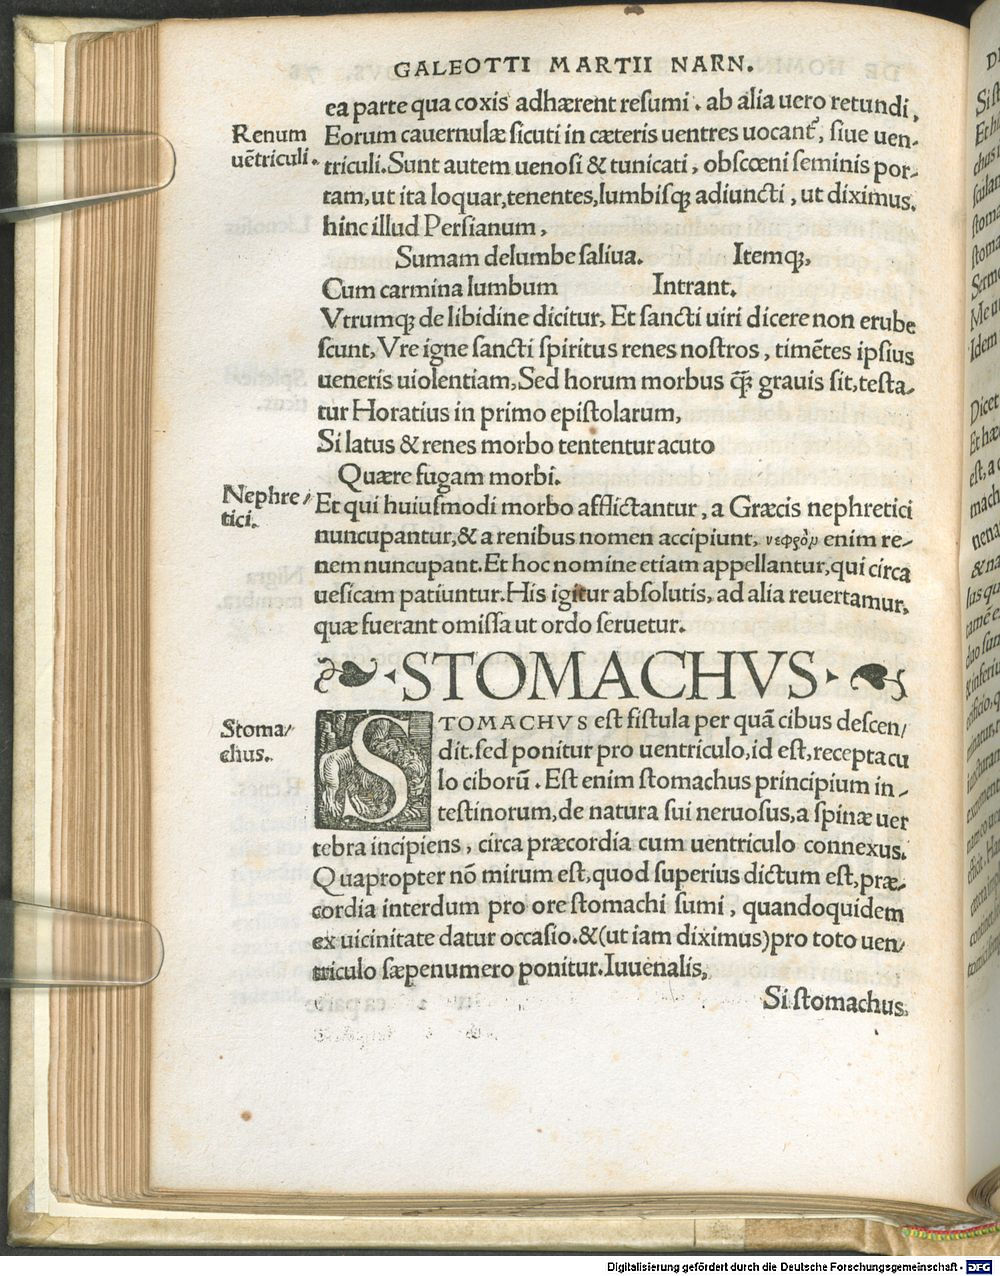 GALEOTTI MARTII NARN.
ea parte qua coxis adhærent resumi. ab alia uero retundi,
Renum
uẽtriculi.
Eorum cauernulæ sicuti in cæteris uentres uocant᷑, siue uen-
triculi. Sunt autem uenosi & tunicati, obscœni seminis por-
tam, ut ita loquar, tenentes, lumbisq; adiuncti, ut diximus.
hinc illud Persianum,
Sumam delumbe saliua. Itemq;,
Cum carmina lumbum Intrant.
Vtrumq; de libidine dicitur, Et sancti uiri dicere non erube
scunt, Vre igne sancti spiritus renes nostros, timẽtes ipsius
ueneris uiolentiam, Sed horum morbus q̃ grauis sit, testa-
tur Horatius in primo epistolarum,
Si latus & renes morbo tententur acuto
Quære fugam morbi.
Nephre/
tici.
Et qui huiusmodi morbo afflictantur, a Græcis nephretici
nuncupantur, & a renibus nomen accipiunt, νεφρὸμ enim re-
nem nuncupant. Et hoc nomine etiam appellantur, qui circa
uesicam patiuntur. His igitur absolutis, ad alia reuertamur,
quæ fuerant omissa ut ordo seruetur.
STOMACHVS
Stoma/
chus.
STOMACHVS est fistula per quã cibus descen/
dit. sed ponitur pro uentriculo, id est, receptacu
lo ciborũ. Est enim stomachus principium in-
testinorum, de natura sui neruosus, a spinæ uer
tebra incipiens, circa præcordia cum uentriculo connexus.
Quapropter nõ mirum est, quod superius dictum est, præ-
cordia interdum pro ore stomachi sumi, quandoquidem
ex uicinitate datur occasio. & (ut iam diximus) pro toto uen/
triculo sæpenumero ponitur. Iuuenalis,
Si stomachus
Digitalisierung gefördert durch die Deutsche Forschungsgemeinschaft - DFG